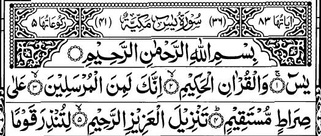 اٰیَاتُهَا ۸۳ (۳۶) سُوْرَةُ یٰسٓ مَكِّیَّةٌ (۴۱) رُكُوْعَاتُهَا ۵
بِسْمِ اللهِ الرَّحْمٰنِ الرَّحِیْمِ
یٰسٓ ۚ وَالْقُرْاٰنِ الْحَكِیْمِ ۙ اِنَّكَ لَمِنَ الْمُرْسَلِیْنَ ۙ عَلٰی
صِرَاطٍ مُّسْتَقِیْمٍ ؕ تَنْزِیْلَ الْعَزِیْزِ الرَّحِیْمِ ۙ لِتُنْذِرَ قَوْمًا